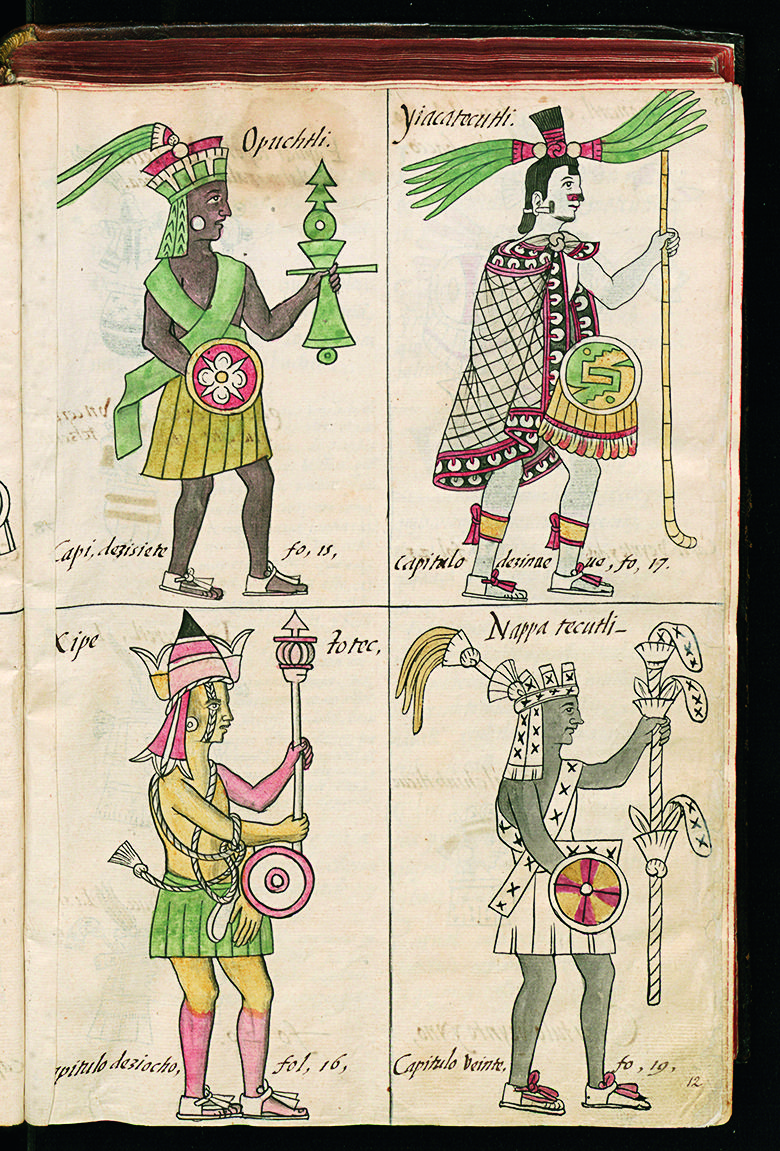 Opuchtli.
Capi, dezisiete fo, 15,
Yiacatecutli.
Capitulo dezinue ue, fo, 17.
Xipe totec,
apitulo deziocho, fol, 16,
Nappa tecutli—
Capitulo Veinte. fo, 19,
12